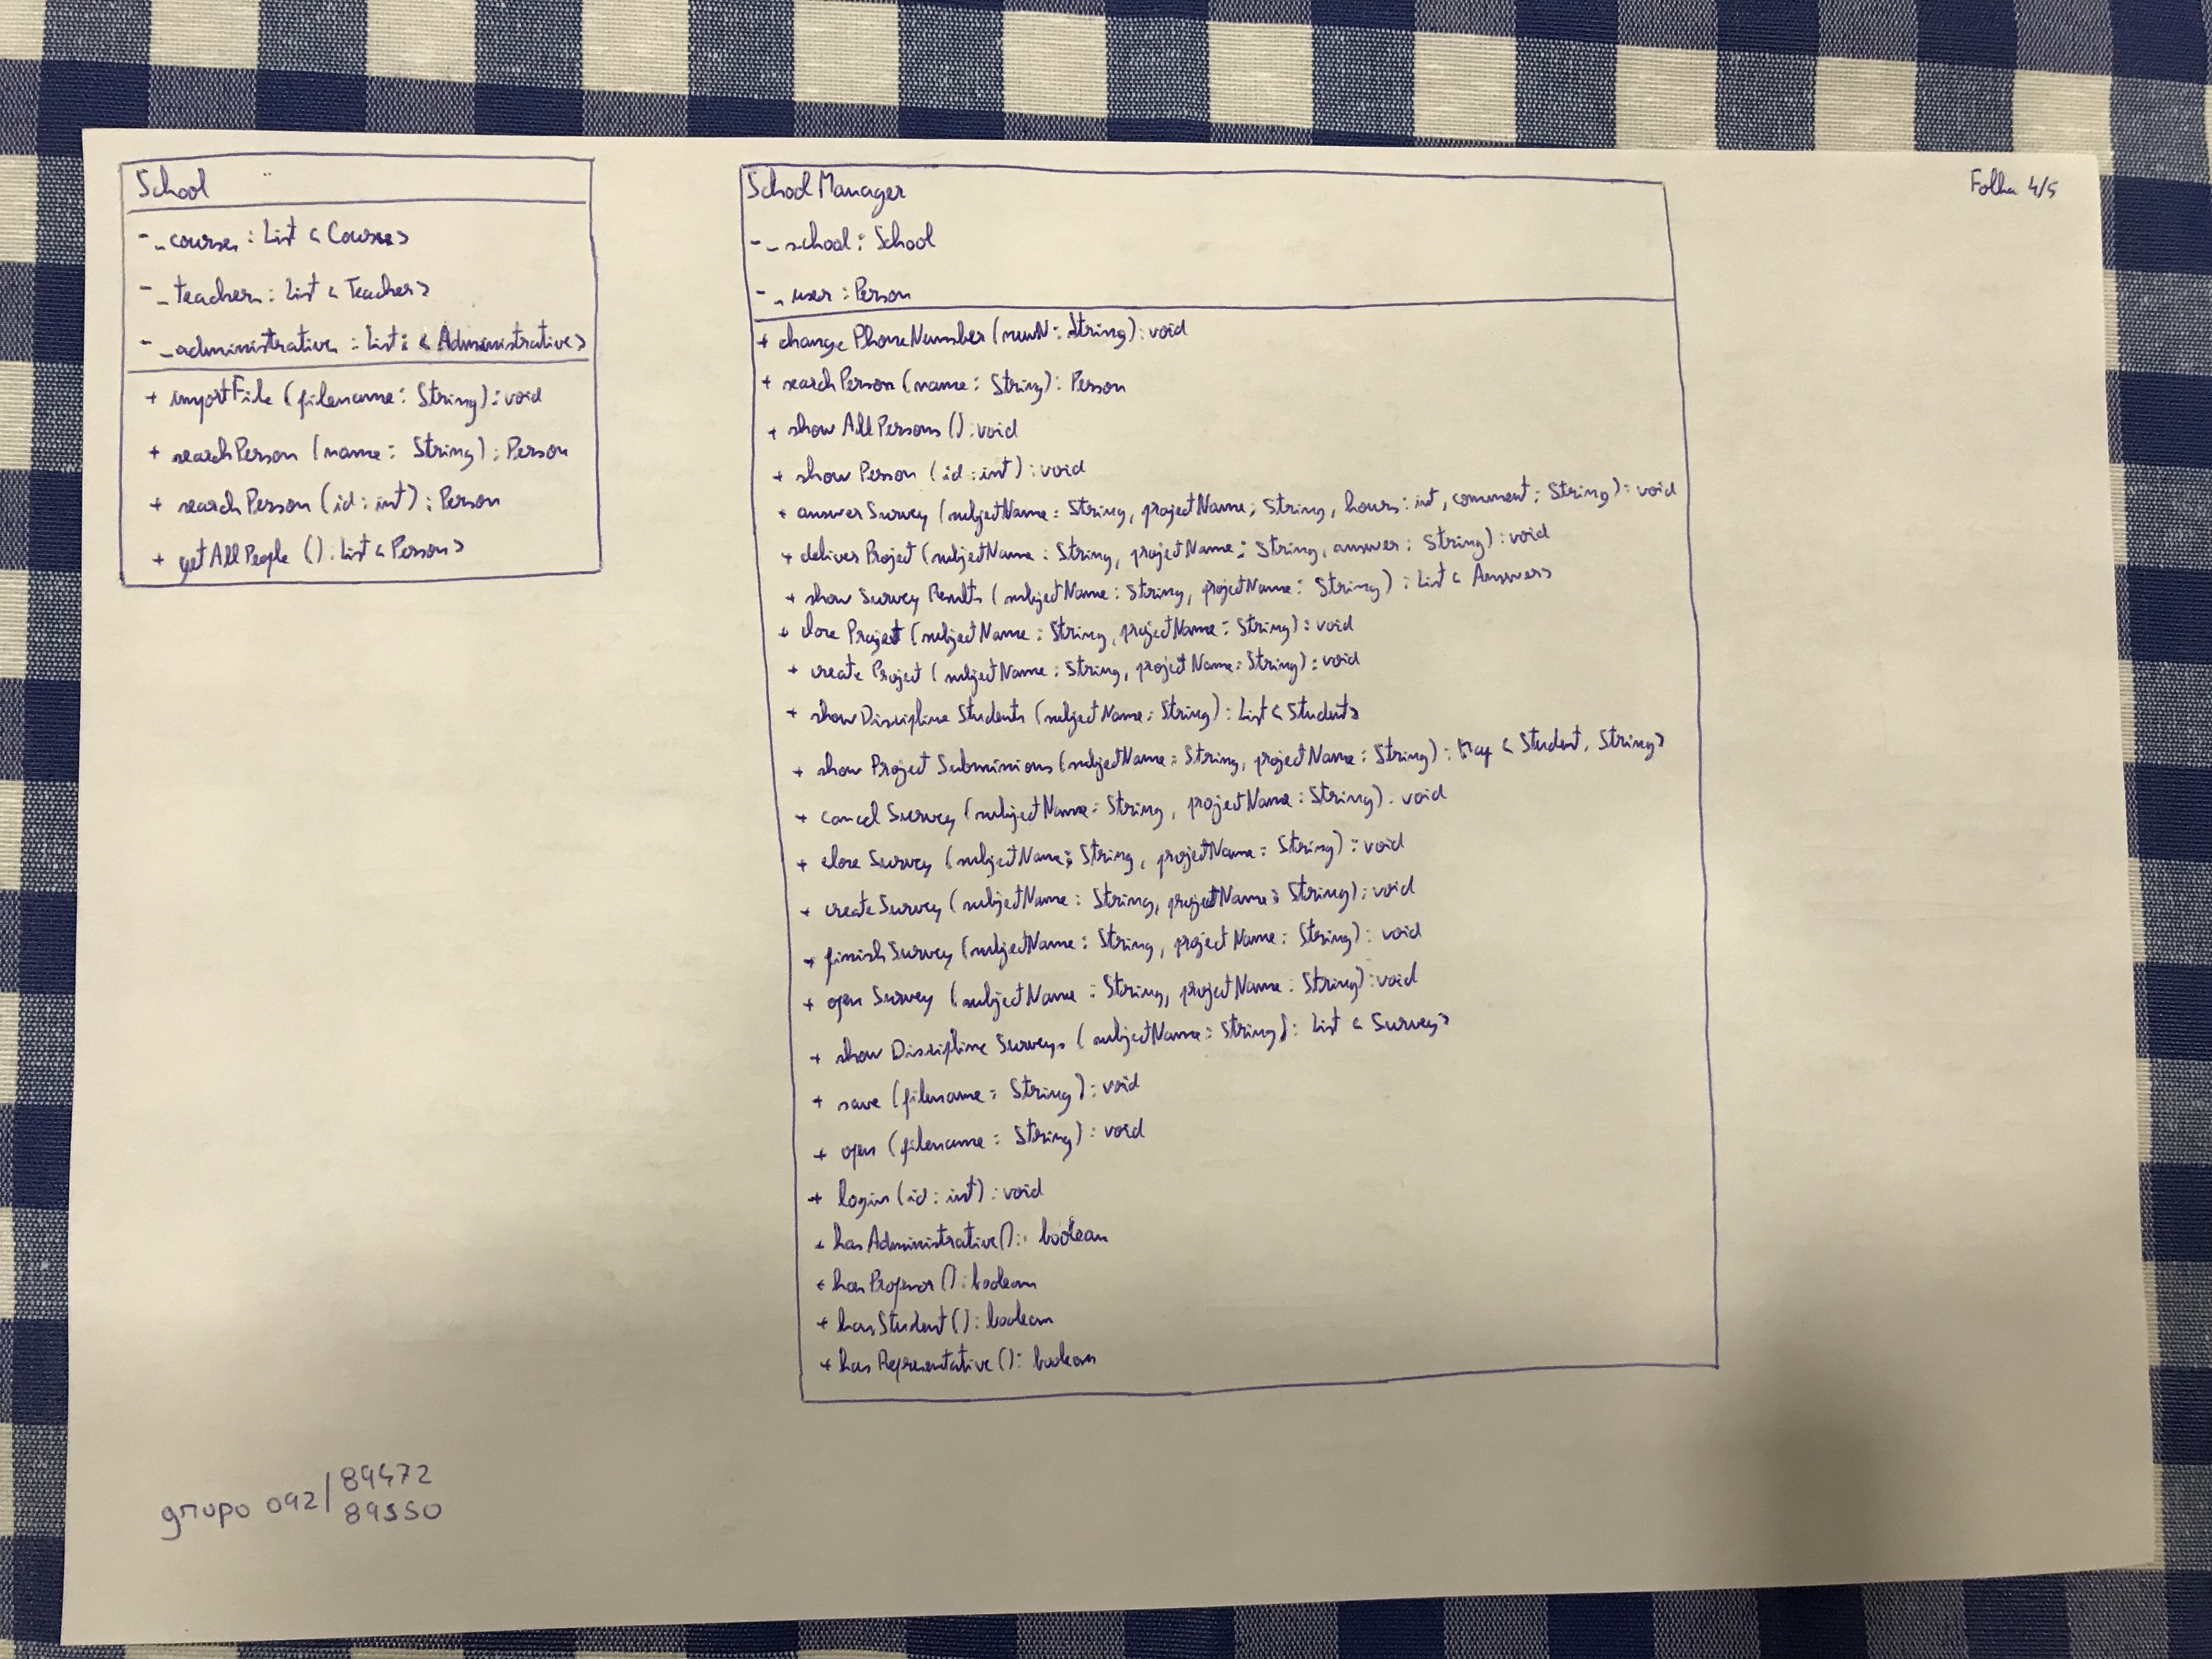 School
- _courses : List < Course>
- _teachers : List < Teacher>
- _administratives : List : < Administrative>
+ importFile (filename : String) : void
+ searchPerson (name : String) : Person
+ searchPerson (id : int) : Person
+ getAllPeople () : List < Person>
SchoolManager
- _school : School
- _user : Person
+ changePhoneNumber (newN : String) : void
+ searchPerson (name : String) : Person
+ showAllPersons () : void
+ showPerson (id : int) : void
+ answerSurvey (subjectName : String, projectName : String, hours : int, comment : String) : void
+ deliverProject (subjectName : String, projectName : String, answer : String) : void
+ showSurveyResults (subjectName : String, projectName : String) : List < Answer>
+ closeProject (subjectName : String, projectName : String) : void
+ createProject (subjectName : String, projectName : String) : void
+ showDiscipline Students (subjectName : String) : List < Student>
+ showProject Submissions (subjectName : String, projectName : String) : Map < Student, String>
+ cancelSurvey (subjectName : String, projectName : String) : void
+ closeSurvey (subjectName : String, projectName : String) : void
+ createSurvey (subjectName : String, projectName : String) : void
+ finishSurvey (subjectName : String, projectName : String) : void
+ openSurvey (subjectName : String, projectName : String) : void
+ showDiscipline Surveys (subjectName : String) : List < Survey>
+ save (filename : String) : void
+ open (filename : String) : void
+ login (id : int) : void
+ hasAdministrative () : boolean
+ hasProfessor () : boolean
+ hasStudent () : boolean
+ hasRepresentative () : boolean
Folha 4/5
grupo 092 / 89472
89550